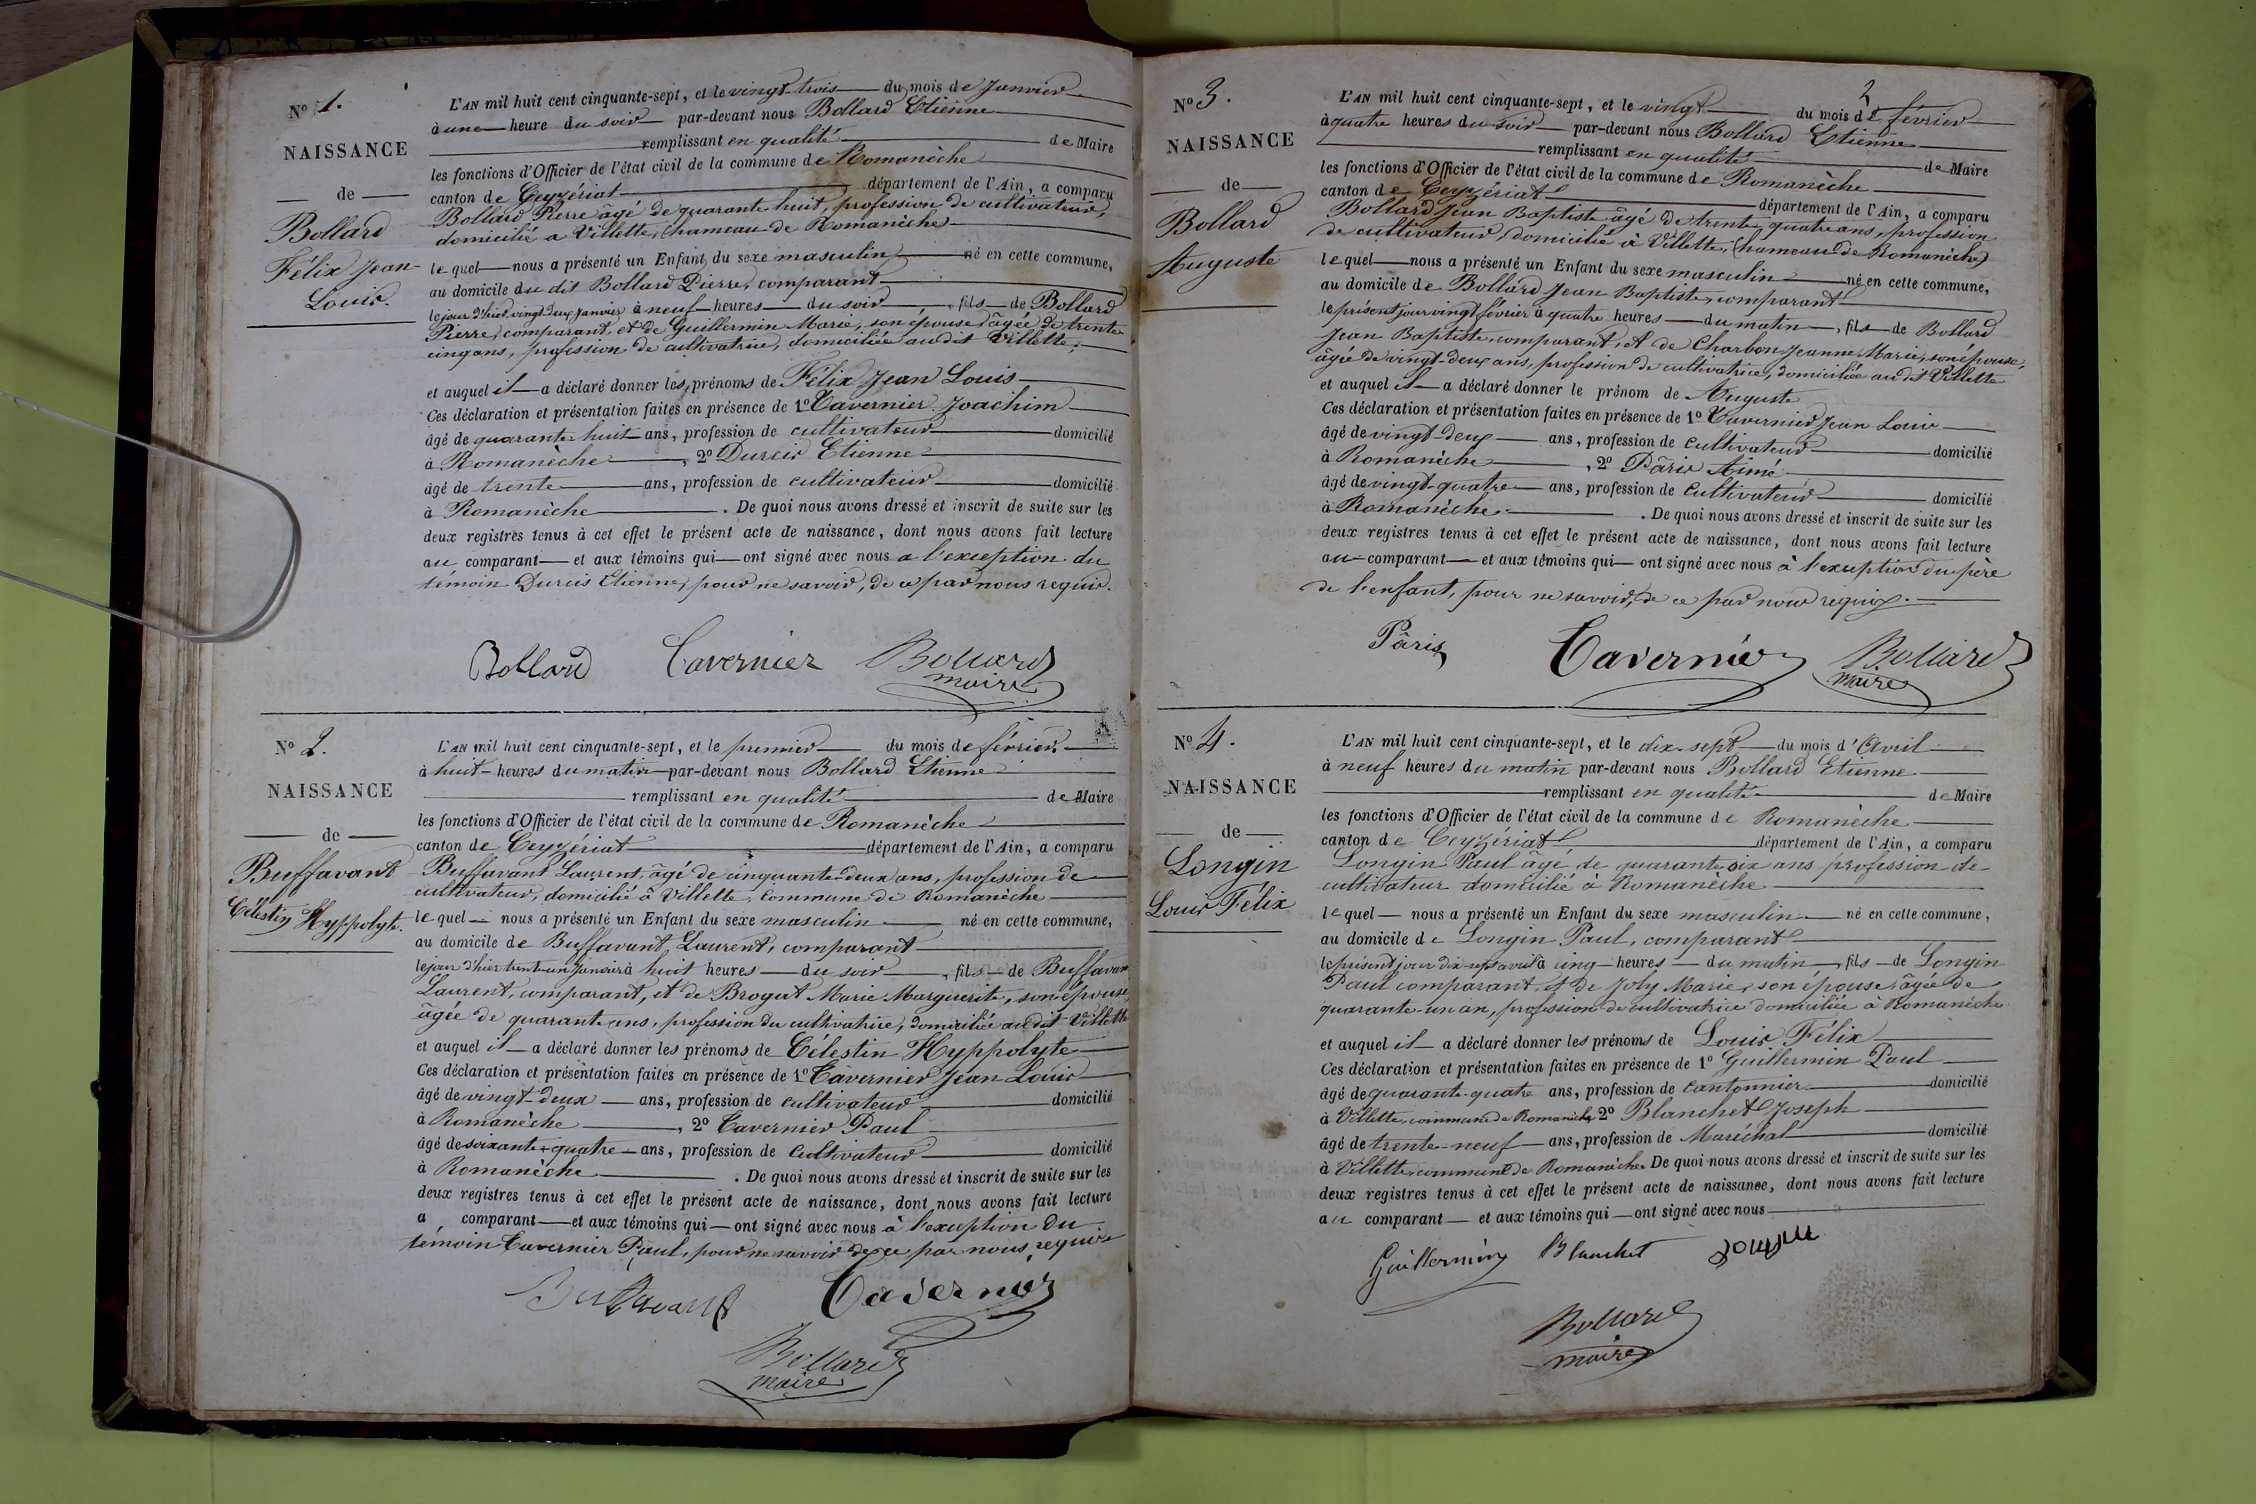 Nº 1.
NAISSANCE
de
Bollard
Félix Jean
Louis
L'AN mil huit cent cinquante-sept, et le vingt-trois du mois de Janvier
à une heure du soir par-devant nous Bollard Etienne
remplissant en qualité de Maire
les fonctions d'Officier de l'état civil de la commune de Romanèche
canton de Ceyzériat département de l'Ain, a comparu
Bollard Pierre âgé de quarante huit, profession de cultivateur,
domicilié a Villette, hameau de Romanèche
lequel nous a présenté un Enfant du sexe masculin né en cette commune,
au domicile du dit Bollard Pierre, comparant
le jour d'hier vingt deux janvier à neuf heures du soir, fils de Bollard
Pierre, comparant, et de Guillermin Marie, son épouse âgée de trente
cinq ans, profession de cultivatrice, domiciliée au dit Villette,
et auquel il a déclaré donner les prénoms de Félix Jean Louis
Ces déclaration et présentation faites en présence de 1º Tavernier Joachim
âgé de quarante huit ans, profession de cultivateur domicilié
à Romanèche, 2º Durcis Etienne
âgé de trente ans, profession de cultivateur domicilié
à Romanèche. De quoi nous avons dressé et inscrit de suite sur les
deux registres tenus à cet effet le présent acte de naissance, dont nous avons fait lecture
au comparant et aux témoins qui ont signé avec nous a l'exception du
témoin Durcis Etienne, pour ne savoir, de ce par nous requis.
Bollard Tavernier Bollard
maire
Nº 2.
NAISSANCE
de
Buffavant
Célestin Hyppolyte.
L'AN mil huit cent cinquante-sept, et le premier du mois de février
à huit heures du matin par-devant nous Bollard Etienne
remplissant en qualité de Maire
les fonctions d'Officier de l'état civil de la commune de Romanèche
canton de Ceyzériat département de l'Ain, a comparu
Buffavant Laurent, âgé de cinquante-deux ans, profession de
cultivateur, domicilié à Villette, commune de Romanèche
lequel nous a présenté un Enfant du sexe masculin né en cette commune,
au domicile de Buffavant Laurent, comparant
le jour d'hier trente-un janvier à huit heures du soir, fils de Buffavant
Laurent, comparant, et de Brogut Marie Marguerite, son épouse,
âgée de quarante ans, profession du cultivatrice, domiciliée au dit Villette
et auquel il a déclaré donner les prénoms de Célestin Hyppolyte
Ces déclaration et présentation faites en présence de 1º Tavernier Jean Louis
âgé de vingt-deux ans, profession de cultivateur domicilié
à Romanèche, 2º Tavernier Paul
âgé de soixante-quatre ans, profession de cultivateur domicilié
à Romanèche. De quoi nous avons dressé et inscrit de suite sur les
deux registres tenus à cet effet le présent acte de naissance, dont nous avons fait lecture
a comparant et aux témoins qui ont signé avec nous à l'exception du
témoin Tavernier Paul, pour ne savoir de ce par nous requis
Buffavant Tavernier
Bollard
maire
2
Nº 3.
NAISSANCE
de
Bollard
Auguste
L'AN mil huit cent cinquante-sept, et le vingt du mois de février
à quatre heures du soir par-devant nous Bollard Etienne
remplissant en qualité de Maire
les fonctions d'Officier de l'état civil de la commune de Romanèche
canton de Ceyzériat département de l'Ain, a comparu
Bollard Jean Baptiste âgé de trente quatre ans, profession
de cultivateur, domicilié à Villette, (hameau de Romanèche)
lequel nous a présenté un Enfant du sexe masculin né en cette commune,
au domicile de Bollard Jean Baptiste, comparant
le présent jour vingt février à quatre heures du matin, fils de Bollard
Jean Baptiste, comparant, et de Charbon Jeanne Marie, son épouse,
âgée de vingt-deux ans, profession de cultivatrice, domiciliée au dit Villette
et auquel il a déclaré donner le prénom de Auguste
Ces déclaration et présentation faites en présence de 1º Tavernier Jean Louis
âgé de vingt-deux ans, profession de cultivateur domicilié
à Romanèche, 2º Pâris Aimé
âgé de vingt-quatre ans, profession de cultivateur domicilié
à Romanèche. De quoi nous avons dressé et inscrit de suite sur les
deux registres tenus à cet effet le présent acte de naissance, dont nous avons fait lecture
au comparant et aux témoins qui ont signé avec nous à l'exception du père
de l'enfant, pour ne savoir, de ce par nous requis.
Pâris Tavernier Bollard
maire
Nº 4.
NAISSANCE
de
Longin
Louis Félix
L'AN mil huit cent cinquante-sept, et le dix-sept du mois d'Avril
à neuf heures du matin par-devant nous Bollard Etienne
remplissant en qualité de Maire
les fonctions d'Officier de l'état civil de la commune de Romanèche
canton de Ceyzériat département de l'Ain, a comparu
Longin Paul âgé de quarante six ans profession de
cultivateur domicilié à Romanèche
lequel nous a présenté un Enfant du sexe masculin né en cette commune,
au domicile de Longin Paul, comparant
le présent jour dix-sept avril à cinq heures du matin, fils de Longin
Paul comparant, et de Joly Marie, son épouse, âgée de
quarante-un an, profession de cultivatrice domiciliée à Romanèche
et auquel il a déclaré donner les prénoms de Louis Félix
Ces déclaration et présentation faites en présence de 1º Guillermin Paul
âgé de quarante-quatre ans, profession de cantonnier domicilié
à Villette, commune de Romanèche, 2º Blanchet Joseph
âgé de trente-neuf ans, profession de Maréchal domicilié
à Villette, commune de Romanèche. De quoi nous avons dressé et inscrit de suite sur les
deux registres tenus à cet effet le présent acte de naissance, dont nous avons fait lecture
au comparant et aux témoins qui ont signé avec nous
Guillermin Blanchet
Bollard
maire